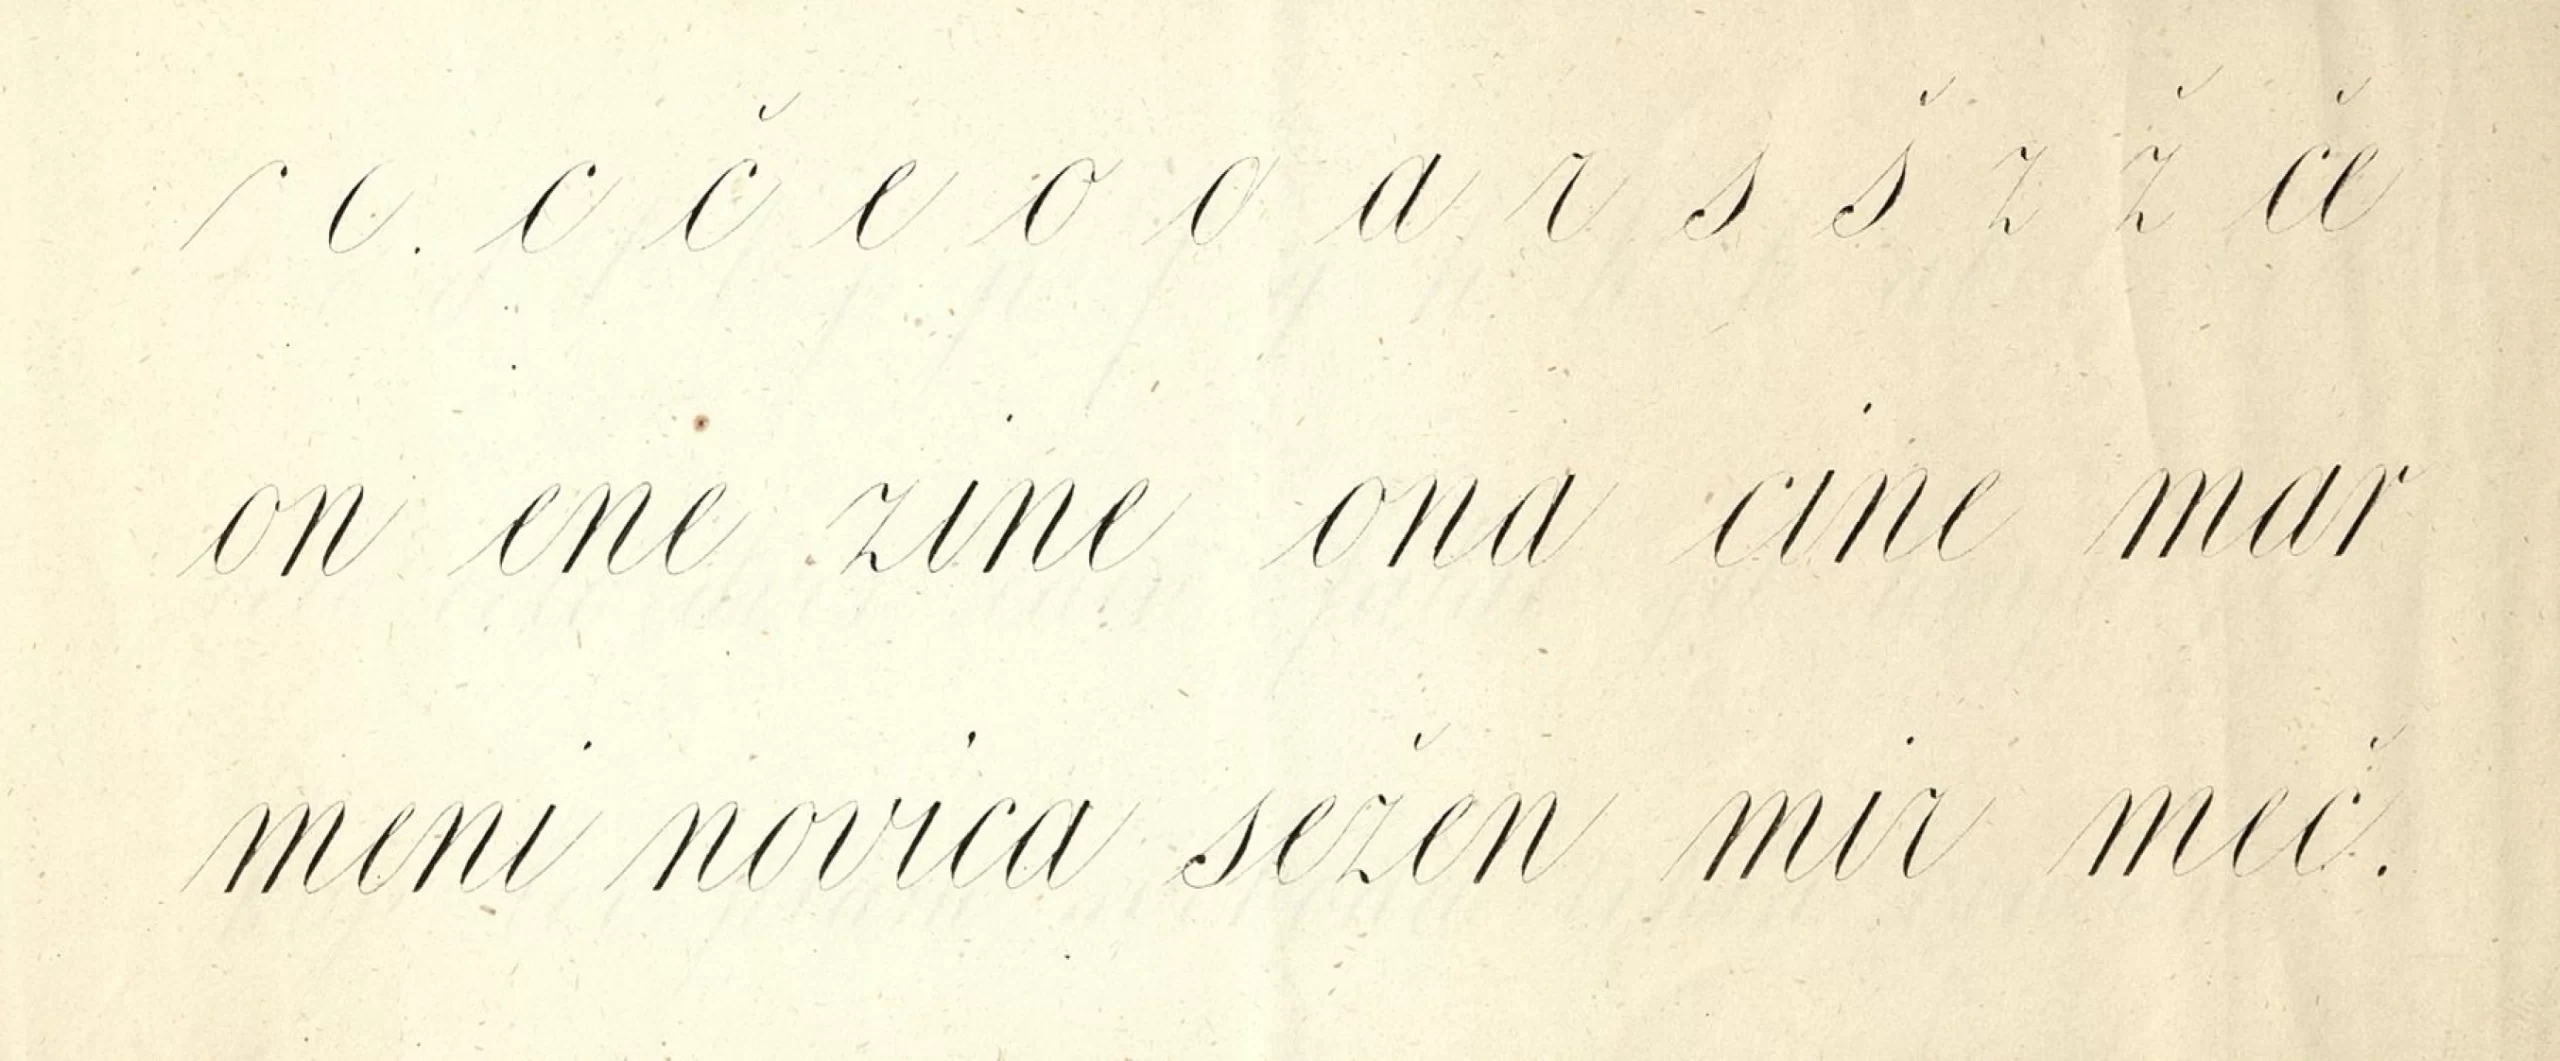 c. c č e o o a r s š z ž če
on ene zine ona cine mar
meni novica sežen mir meč.